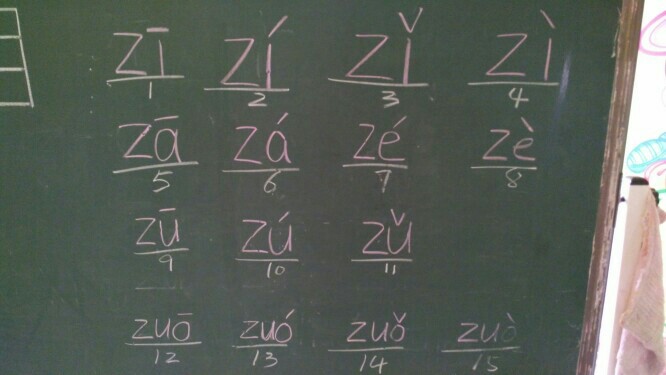 zī zí zǐ zì
1 2 3 4
zā zá zé zè
5 6 7 8
zū zú zǔ
9 10 11
zuō zuó zuǒ zuò
12 13 14 15